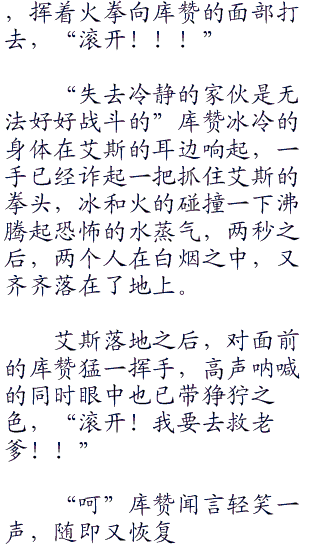 ，挥着火拳向库赞的面部打
去，“滚开！！！”
“失去冷静的家伙是无
法好好战斗的”库赞冰冷的
身体在艾斯的耳边响起，一
手已经诈起一把抓住艾斯的
拳头，冰和火的碰撞一下沸
腾起恐怖的水蒸气，两秒之
后，两个人在白烟之中，又
齐齐落在了地上。
艾斯落地之后，对面前
的库赞猛一挥手，高声呐喊
的同时眼中也已带狰狞之
色，“滚开！我要去救老
爹！！”
“呵”库赞闻言轻笑一
声，随即又恢复